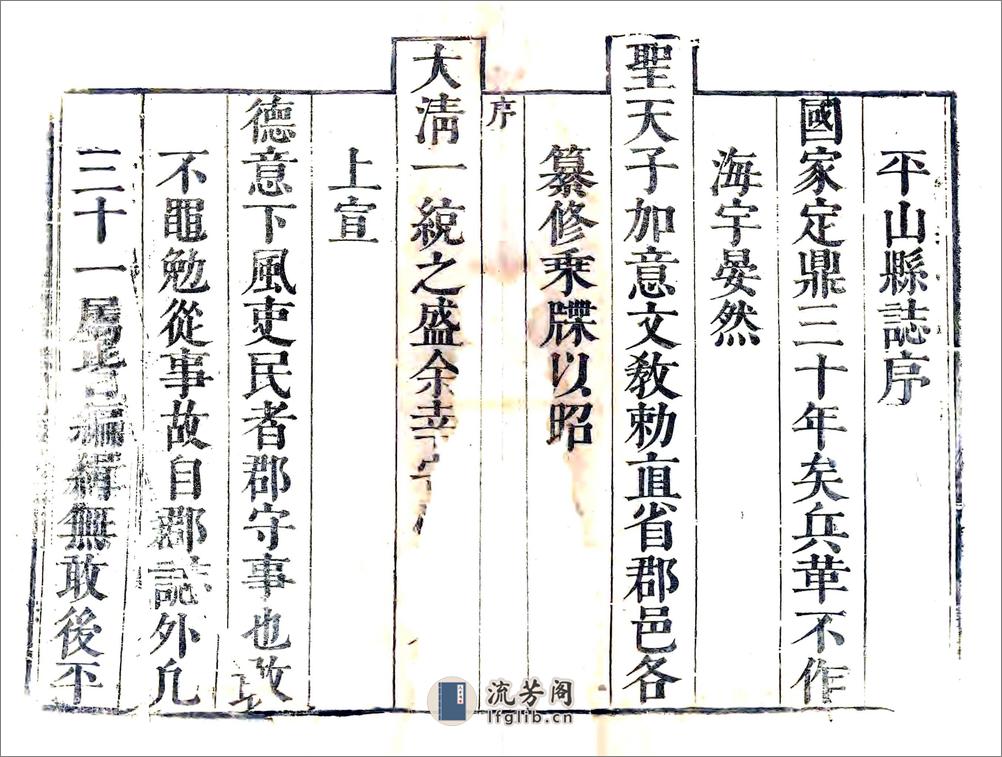 平山縣誌序
國家定鼎三十年矣兵革不作
海宇晏然
聖天子加意文教勅直省郡邑各
纂修乘牒以昭
序
大淸一統之盛余幸守
上宣
德意下風吏民者郡守事也敢
不黽勉從事故自郡誌外凡
三十一屬編緝無敢後平
流芳阁
lfglib.cn